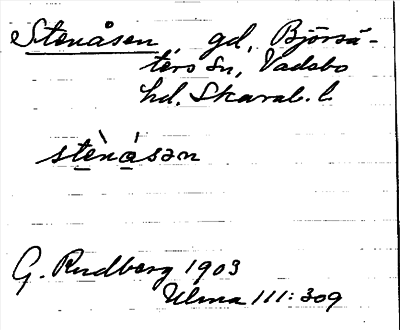 Stenåsen, gd, Björsä-
ters sn, Vadsbo
hd, Skarab. l.
stènásən
G. Rudberg 1903
Ulma 111:309